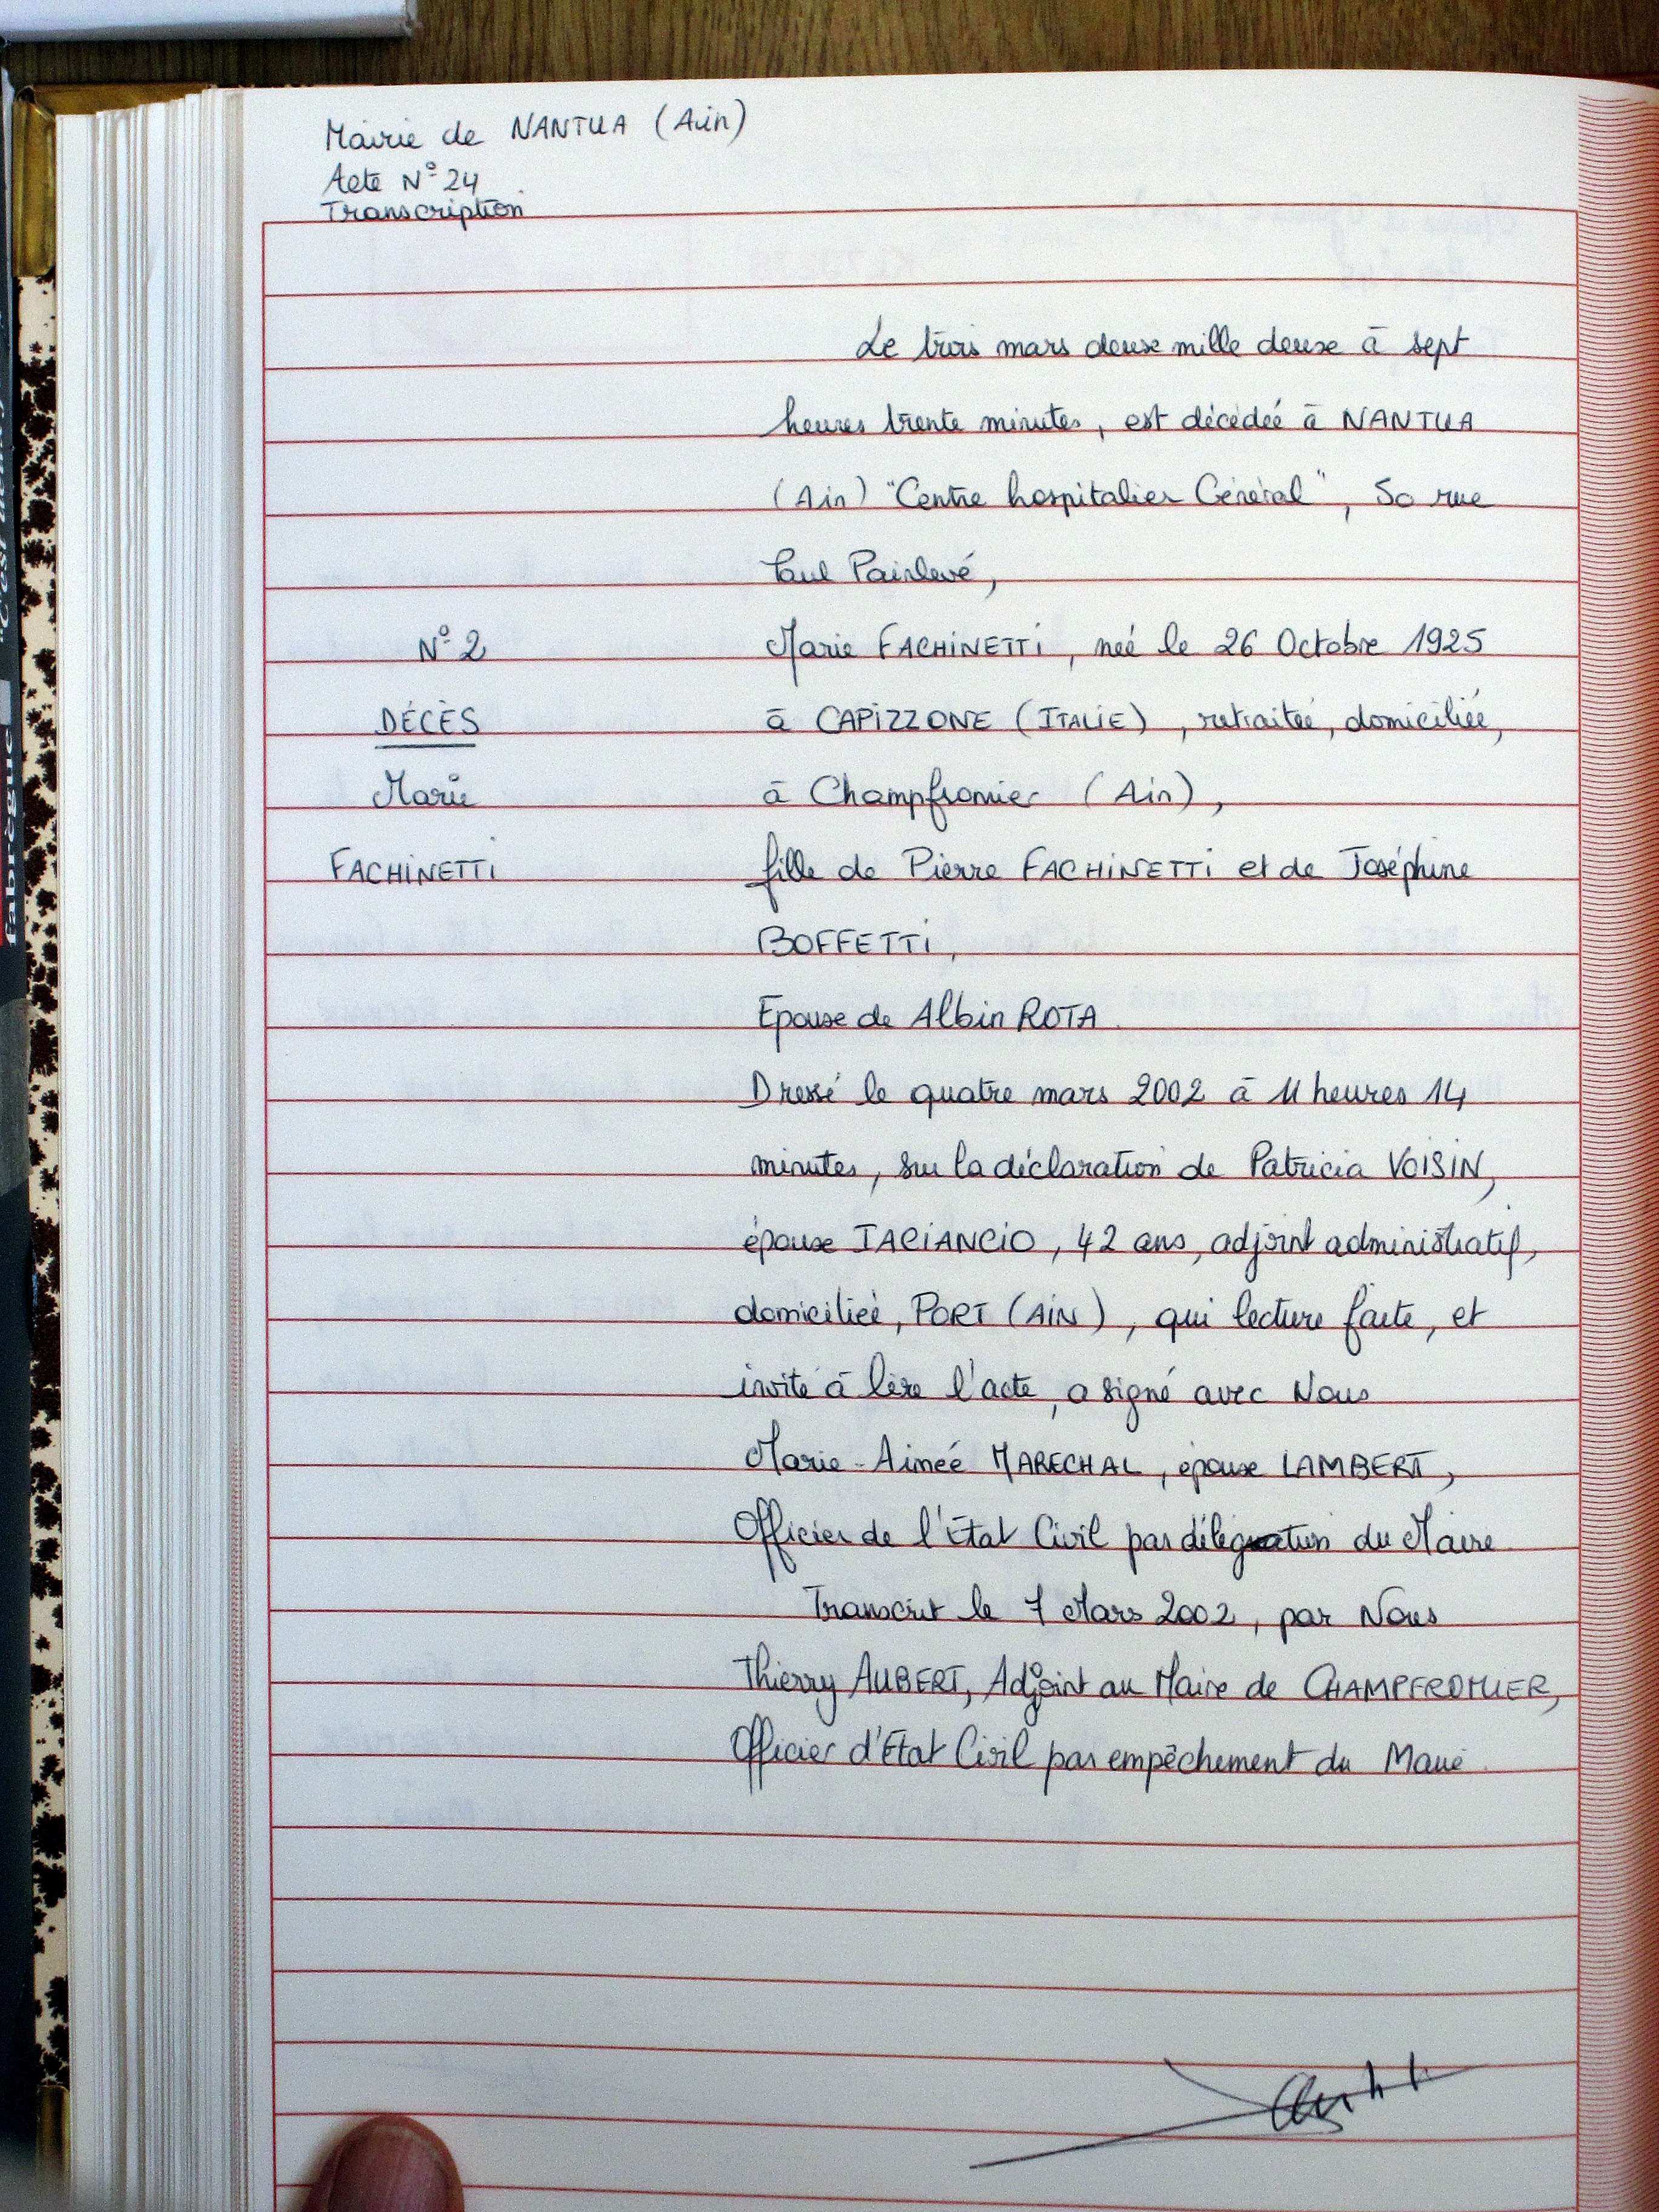 Mairie de NANTUA (Ain)
Acte N° 24
Transcription
Le trois mars deux mille deux à sept
heures trente minutes, est décédée à NANTUA
(Ain) "Centre hospitalier Général", 50 rue
Paul Painlevé,
N° 2
Marie FACHINETTI, née le 26 Octobre 1925
DÉCÈS
à CAPIZZONE (ITALIE), retraitée, domiciliée,
Marie
à Champfromier (Ain),
FACHINETTI
fille de Pierre FACHINETTI et de Joséphine
BOFFETTI,
Epouse de Albin ROTA.
Dressé le quatre mars 2002 à 11 heures 14
minutes, sur la déclaration de Patricia VOISIN,
épouse IACIANCIO, 42 ans, adjoint administratif,
domiciliée, PORT (AIN), qui lecture faite, et
invité à lire l'acte, a signé avec Nous
Marie-Aimée MARECHAL, épouse LAMBERT,
Officier de l'Etat Civil par délégation du Maire.
Transcrit le 7 Mars 2002, par Nous
Thierry AUBERT, Adjoint au Maire de CHAMPFROMIER,
Officier d'Etat Civil par empêchement du Maire.
fabrègue